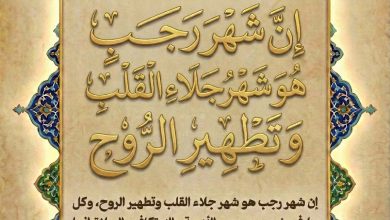 إِنَّ شَهْرَ رَجَبٍ
هُوَ شَهْرُ جَلَاءِ الْقَلْبِ
وَتَطْهِيرِ الرُّوحِ
إن شهر رجب هو شهر جلاء القلب وتطهير الروح، وكل